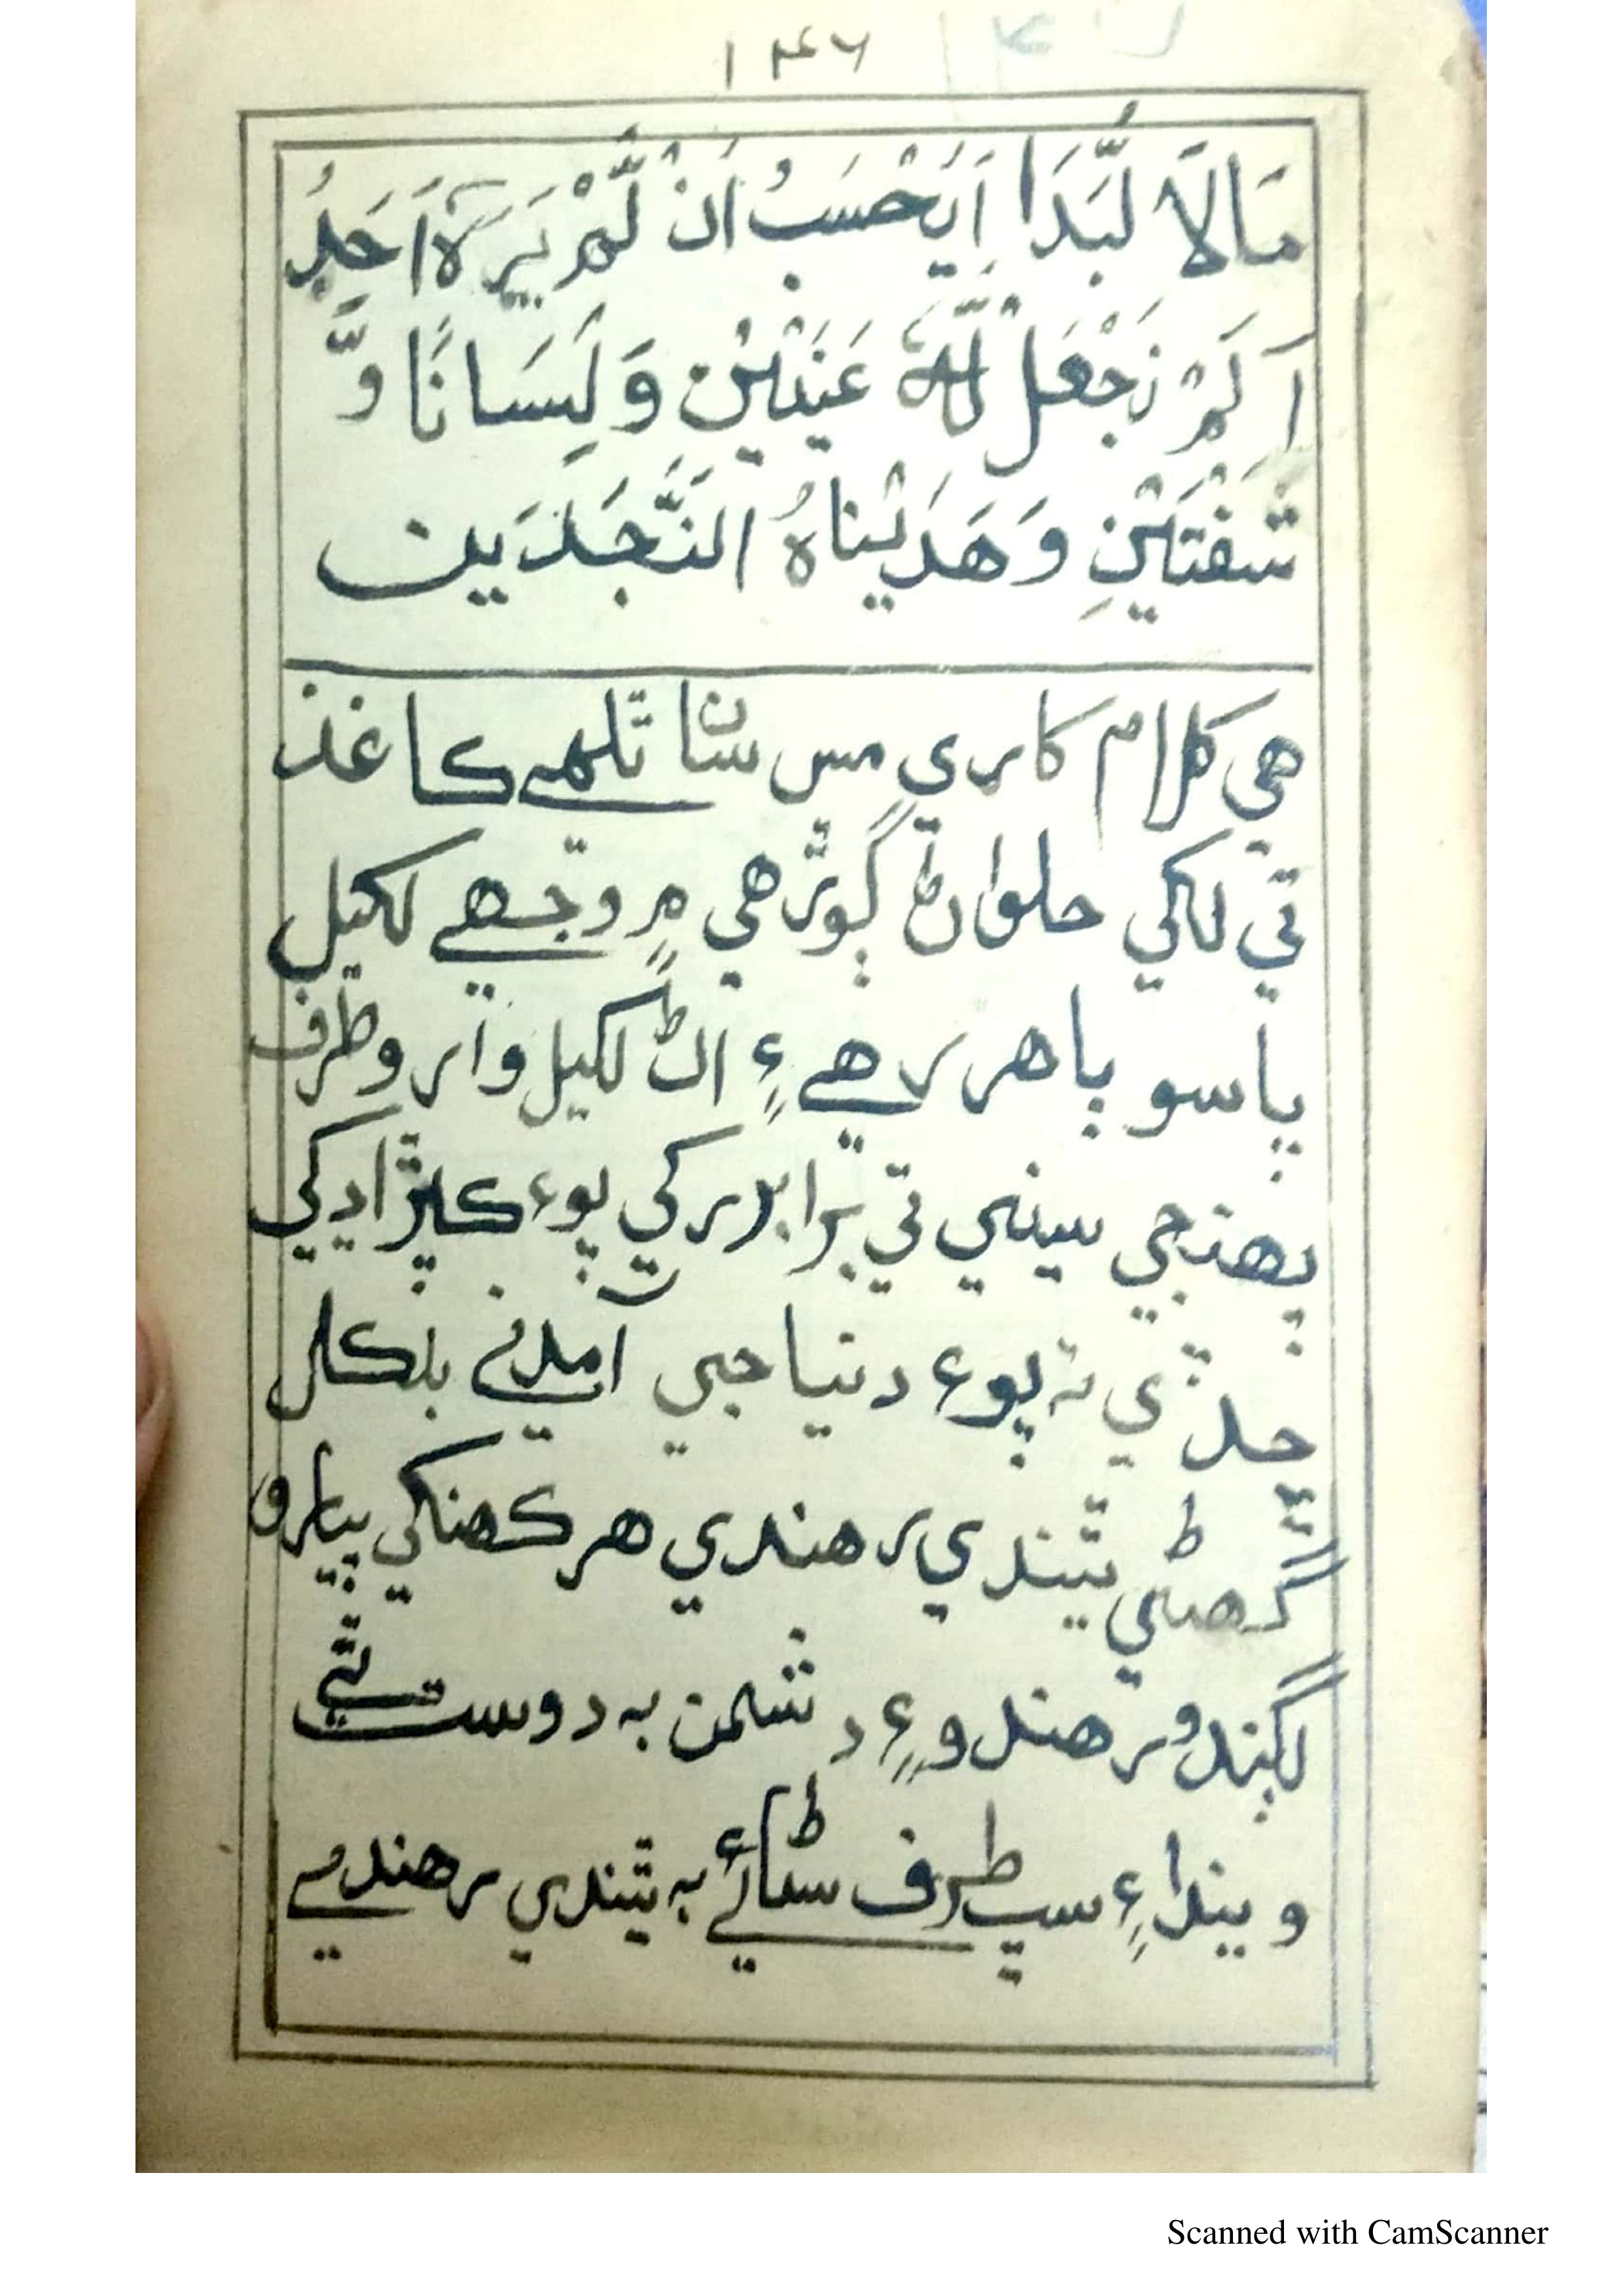 ١٤٦
مَالًا لُّبَدًا اَيَحْسَبُ اَنْ لَّمْ يَرَهٗ اَحَدٌ
اَلَمْ نَجْعَلْ لَّهٗ عَيْنَيْنِ وَلِسَانًا وَّ
شَفَتَيْنِ وَهَدَيْنَاهُ النَّجْدَيْن
هي ڪلام ڪاري مس سان ٿلهي ڪاغذ
تي لکي حلوان ڳوڙهي ۾ وجهي لکيل
پاسو ٻاهر رهي ۽ اڻ لکيل وارو طرف
پهنجي سيني تي برابر رکي پوءِ ڪپڙا ڍڪي
ڇڏي ته پوءِ دنيا جي آمدني بلڪل
گهڻي ٿيندي رهندي هر ڪهنکي پيارو
لڳندو رهندو ۽ دشمن به دوست ٿي
ويندا ۽ سڀ طرف سڻائي به ٿيندي رهندي
Scanned with CamScanner